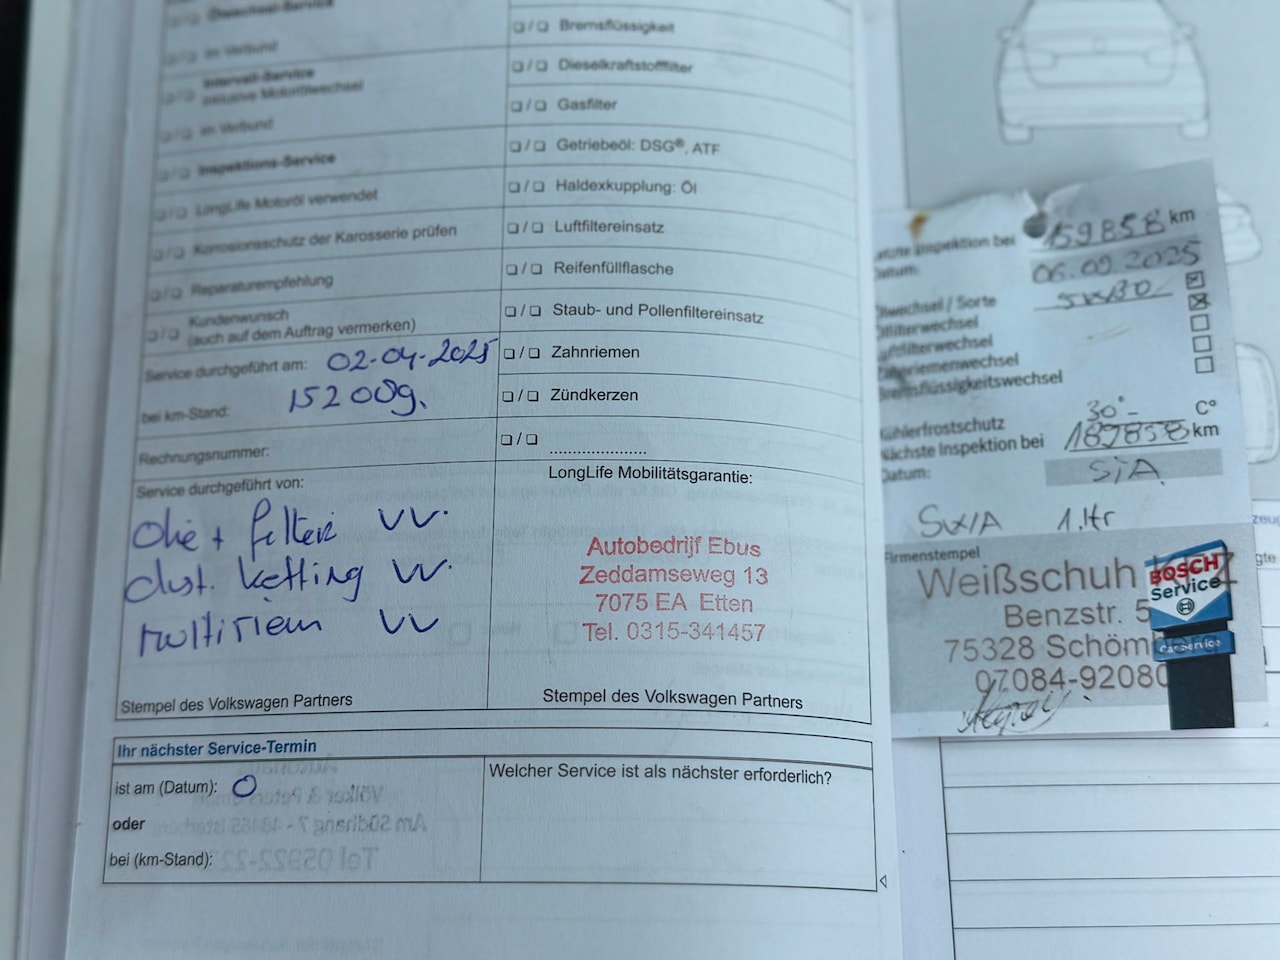 Ölwechsel-Service
im Verbund
Intervall-Service
inklusive Motorölwechsel
im Verbund
Inspektions-Service
LongLife Motoröl verwendet
Korrosionsschutz der Karosserie prüfen
Reparaturempfehlung
Kundenwunsch
(auch auf dem Auftrag vermerken)
Service durchgeführt am: 02-04-2025
bei km-Stand: 152009.
Rechnungsnummer:
Service durchgeführt von:
olie + filter VV.
dist. ketting VV.
multiriem VV
Stempel des Volkswagen Partners
Bremsflüssigkeit
Dieselkraftstofffilter
Gasfilter
Getriebeöl: DSG®, ATF
Haldexkupplung: Öl
Luftfiltereinsatz
Reifenfüllflasche
Staub- und Pollenfiltereinsatz
Zahnriemen
Zündkerzen
LongLife Mobilitätsgarantie:
Autobedrijf Ebus
Zeddamseweg 13
7075 EA Etten
Tel. 0315-341457
Stempel des Volkswagen Partners
Ihr nächster Service-Termin
ist am (Datum): 0
oder
bei (km-Stand):
Welcher Service ist als nächster erforderlich?
Inspektion bei 159858 km
Datum: 06.09.2025
Ölwechsel / Sorte 5W30
Ölfilterwechsel
Luftfilterwechsel
Zahnriemenwechsel
Bremsflüssigkeitswechsel
Kühlerfrostschutz 30°- C°
Nächste Inspektion bei 189858 km
Datum: SIA
1.ltr
Firmenstempel
Weißschuh
Benzstr. 5
75328 Schömberg
07084-92080
BOSCH
Service
Car Service